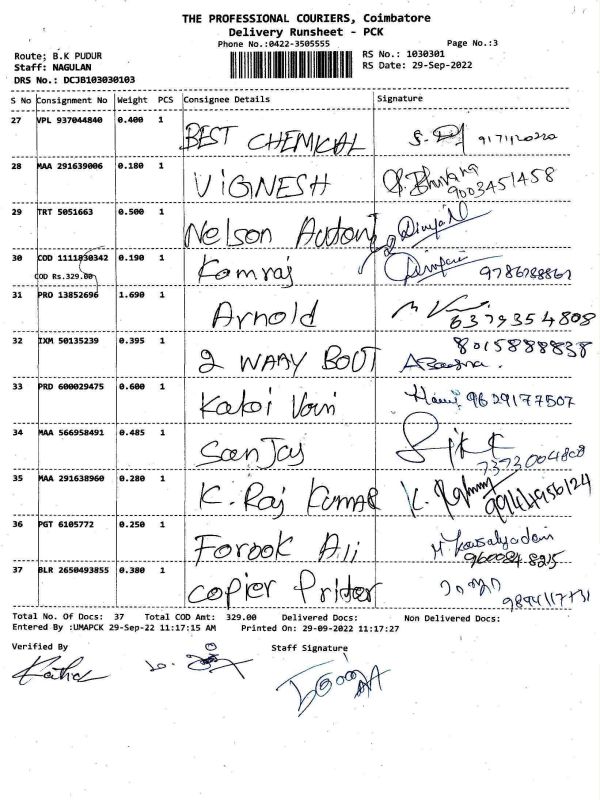 THE PROFESSIONAL COURIERS, Coimbatore
Delivery Runsheet - PCK
Phone No.:0422-3505555 Page No.:3
Route; B.K PUDUR RS No.: 1030301
Staff: NAGULAN RS Date: 29-Sep-2022
DRS No.: DCJB103030103
S No Consignment No Weight PCS Consignee Details Signature
27 VPL 937044840 0.400 1 BEST CHEMICAL
28 MAA 291639006 0.180 1 VIGNESH 9003451458
29 TRT 5051663 0.500 1 Nelson
30 COD 1111030342 0.190 1 Kamraj
COD Rs.329.00
31 PRO 13852696 1.690 1 Arnold 6379354808
32 IXM 50135239 0.395 1 2 WAAY BOUT 8015888838
33 PRD 600029475 0.600 1 9629177507
34 MAA 566958491 0.485 1 SanJay 7373004808
35 MAA 291638960 0.280 1 K. Raj KUMAR K. 9944956124
36 PGT 6105772 0.250 1 Farook Ali
37 BLR 2650493855 0.380 1 Copier
Total No. Of Docs: 37 Total COD Amt: 329.00 Delivered Docs: Non Delivered Docs:
Entered By :UMAPCK 29-Sep-22 11:17:15 AM Printed On: 29-09-2022 11:17:27
Verified By Staff Signature